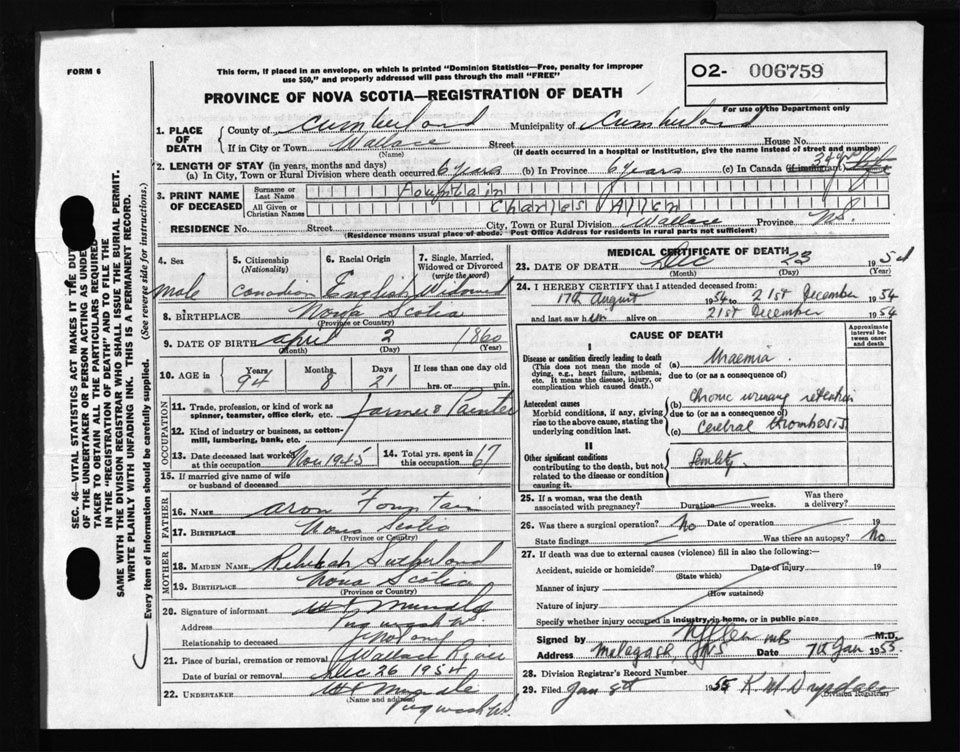 FORM 6
This form, if placed in an envelope, on which is printed "Dominion Statistics—Free, penalty for improper
use $50," and properly addressed will pass through the mail "FREE"
O2- 006759
For use of the Department only
PROVINCE OF NOVA SCOTIA—REGISTRATION OF DEATH
1. PLACE OF DEATH
County of Cumberland Municipality of Cumberland
If in City or Town Wallace Street House No.
(Name) (If death occurred in a hospital or institution, give the name instead of street and number)
2. LENGTH OF STAY (in years, months and days)
(a) In City, Town or Rural Division where death occurred 6 years (b) In Province 6 years (c) In Canada (if immigrant)
3. PRINT NAME OF DECEASED
Surname or Last Name Fountain
All Given or Christian Names Charles Allen
RESIDENCE No. Street City, Town or Rural Division Wallace Province N.S.
(Residence means usual place of abode. Post Office Address for residents in rural parts not sufficient)
4. Sex
Male
5. Citizenship
(Nationality)
Canadian
6. Racial Origin
English
7. Single, Married,
Widowed or Divorced
(write the word)
Widowed
8. BIRTHPLACE Nova Scotia
(Province or Country)
9. DATE OF BIRTH April 2 1860
(Month) (Day) (Year)
10. AGE in
Years Months Days If less than one day old
94 8 21 hrs. or min.
OCCUPATION
11. Trade, profession, or kind of work as
spinner, teamster, office clerk, etc. Farmer & Painter
12. Kind of industry or business, as cotton-
mill, lumbering, bank, etc.
13. Date deceased last worked
at this occupation Nov 1945
14. Total yrs. spent in
this occupation 67
15. If married give name of wife
or husband of deceased
FATHER
16. Name Aron Fountain
17. Birthplace Nova Scotia
(Province or Country)
MOTHER
18. MAIDEN NAME Rebekah Sutherland
19. BIRTHPLACE Nova Scotia
(Province or Country)
20. Signature of informant
Address Pugwash N.S.
Relationship to deceased Not any
21. Place of burial, cremation or removal Wallace River
Date of burial or removal Dec 26 1954
22. UNDERTAKER
(Name and address) Pugwash N.S.
MEDICAL CERTIFICATE OF DEATH
23. DATE OF DEATH Dec 23 1954
(Month) (Day) (Year)
24. I HEREBY CERTIFY that I attended deceased from:
17th August 1954 to 21st December 1954
and last saw him alive on 21st December 1954
CAUSE OF DEATH
Approximate
interval be-
tween onset
and death
I
Disease or condition directly leading to death
(This does not mean the mode of
dying, e.g., heart failure, asthenia,
etc. It means the disease, injury, or
complication which caused death.)
(a) Uraemia
due to (or as a consequence of)
Antecedent causes
Morbid conditions, if any, giving
rise to the above cause, stating the
underlying condition last.
(b) Chronic urinary retention
due to (or as a consequence of)
(c) Cerebral thrombosis
II
Other significant conditions
contributing to the death, but not
related to the disease or condition
causing it.
Senility
25. If a woman, was the death
associated with pregnancy? Duration weeks. Was there
a delivery?
26. Was there surgical operation? No Date of operation 19
State findings Was there an autopsy? No
27. If death was due to external causes (violence) fill in also the following:—
Accident, suicide or homicide? Date of injury 19
(State which)
Manner of injury
(How sustained)
Nature of injury
Specify whether injury occurred in industry, in home, or in public place
Signed by MB M.D.
Address Malagash NS Date 7th Jan 1955
28. Division Registrar's Record Number
29. Filed Jan 8th 1955 K. M. Drysdale
(Division Registrar)
SEC. 46—VITAL STATISTICS ACT MAKES IT THE DUTY
OF THE UNDERTAKER OR PERSON ACTING AS UNDER-
TAKER TO OBTAIN ALL THE PARTICULARS REQUIRED
IN THE "REGISTRATION OF DEATH" AND TO FILE THE
SAME WITH THE DIVISION REGISTRAR WHO SHALL ISSUE THE BURIAL PERMIT.
WRITE PLAINLY WITH UNFADING INK. THIS IS A PERMANENT RECORD.
Every item of information should be carefully supplied. (See reverse side for instructions.)